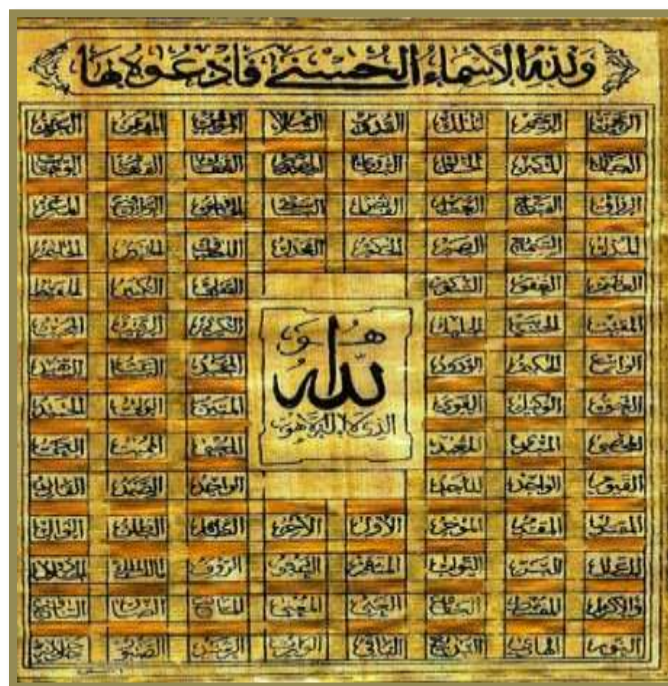 ولله الأسماء الحسنى فادعوه بها
الرحمن الرحيم الملك القدوس السلام المؤمن المهيمن العزيز
الجبار المتكبر الخالق البارئ المصور الغفار القهار الوهاب
الرزاق الفتاح العليم القابض الباسط الخافض الرافع المعز
المذل السميع البصير الحكم العدل اللطيف الخبير الحليم
العظيم الغفور الشكور العلي الكبير الحفيظ
المقيت الحسيب الجليل الكريم الرقيب المجيب
الواسع الحكيم الودود المجيد الباعث الشهيد
الحق الوكيل القوي المتين الولي الحميد
المحصي المبدئ المعيد المحيي المميت
القيوم الواجد الماجد الواحد الصمد القادر
هو
الله
الذي لا إله إلا هو
المقتدر المقدم المؤخر الأول الآخر الظاهر الباطن الوالي
المتعال البر التواب المنتقم العفو الرؤوف مالك الملك ذو الجلال
والإكرام المقسط الجامع الغني المغني المانع الضار النافع
النور الهادي البديع الباقي الوارث الرشيد الصبور